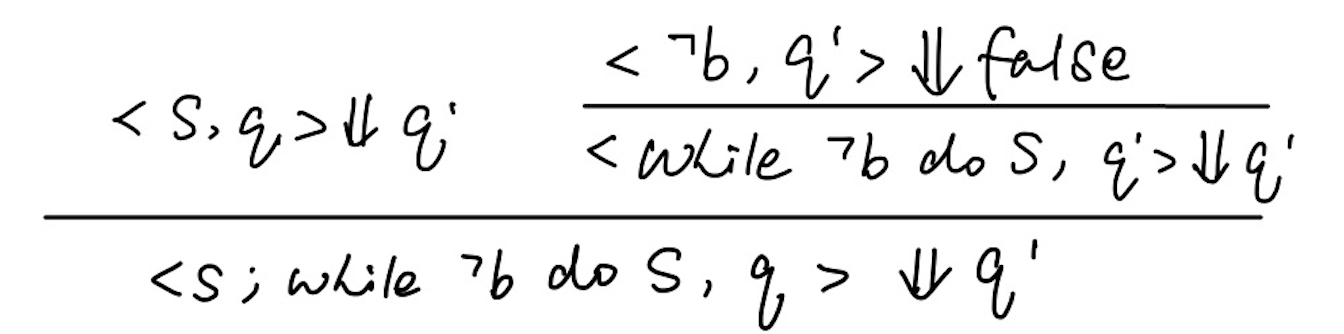 < ¬b, q' > ⇓ false
< S, q > ⇓ q'
< while ¬b do S, q' > ⇓ q'
< S ; while ¬b do S, q > ⇓ q'